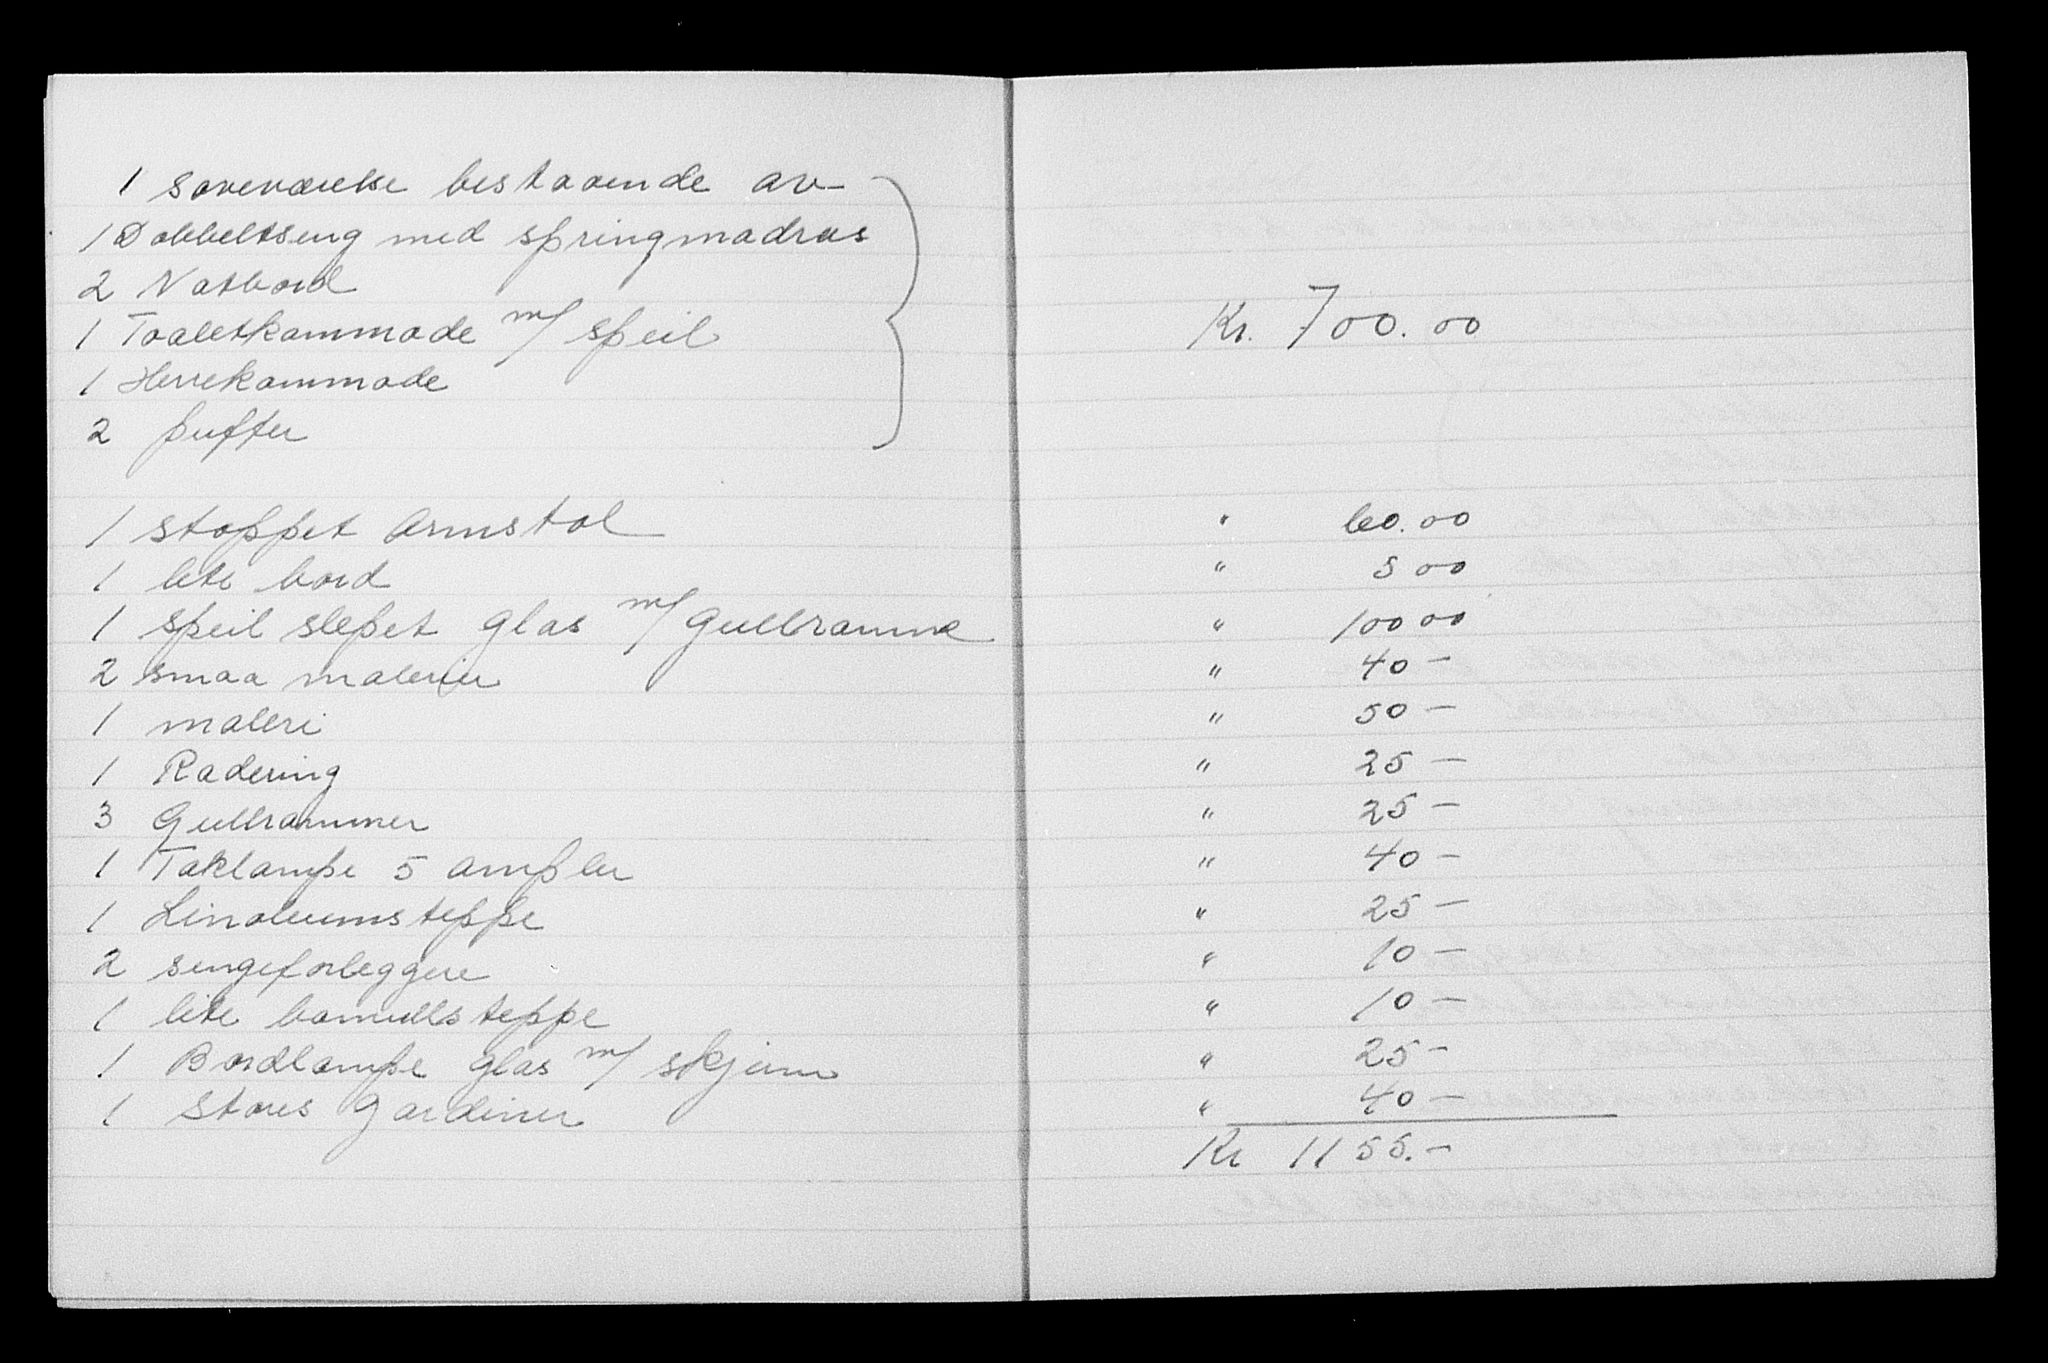 1 soveværelse bestaaende av
1 Dobbeltseng med springmadras
2 Natbord
1 Toaletkommode m/ speil
1 Herrekommode
2 puffer
Kr. 700.00
1 stoppet Armstol " 60.00
1 lite bord " 5 00
1 speil slepet glas m/ Gullramme " 100 00
2 smaa malerier " 40 —
1 maleri " 50 —
1 Radering " 25 —
3 Gullrammer " 25 —
1 Taklampe 5 ampler " 40 —
1 Linoleumsteppe " 25 —
2 sengeforleggere " 10 —
1 lite bomullsteppe " 10 —
1 Bordlampe glas m/ skjerm " 25 —
1 Stores Gardiner " 40 —
Kr 1155.—